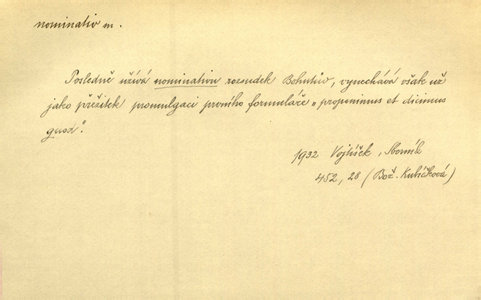 nominativ m.
Posledně užívá nominativu rozsudek Bohutův, vynechává však už
jako přežitek promulgaci prvního formuláře „proponimus et dicimus
quod“.
1932 Vojtíšek, Sborník
452, 28 (Bož. Kubíčková)